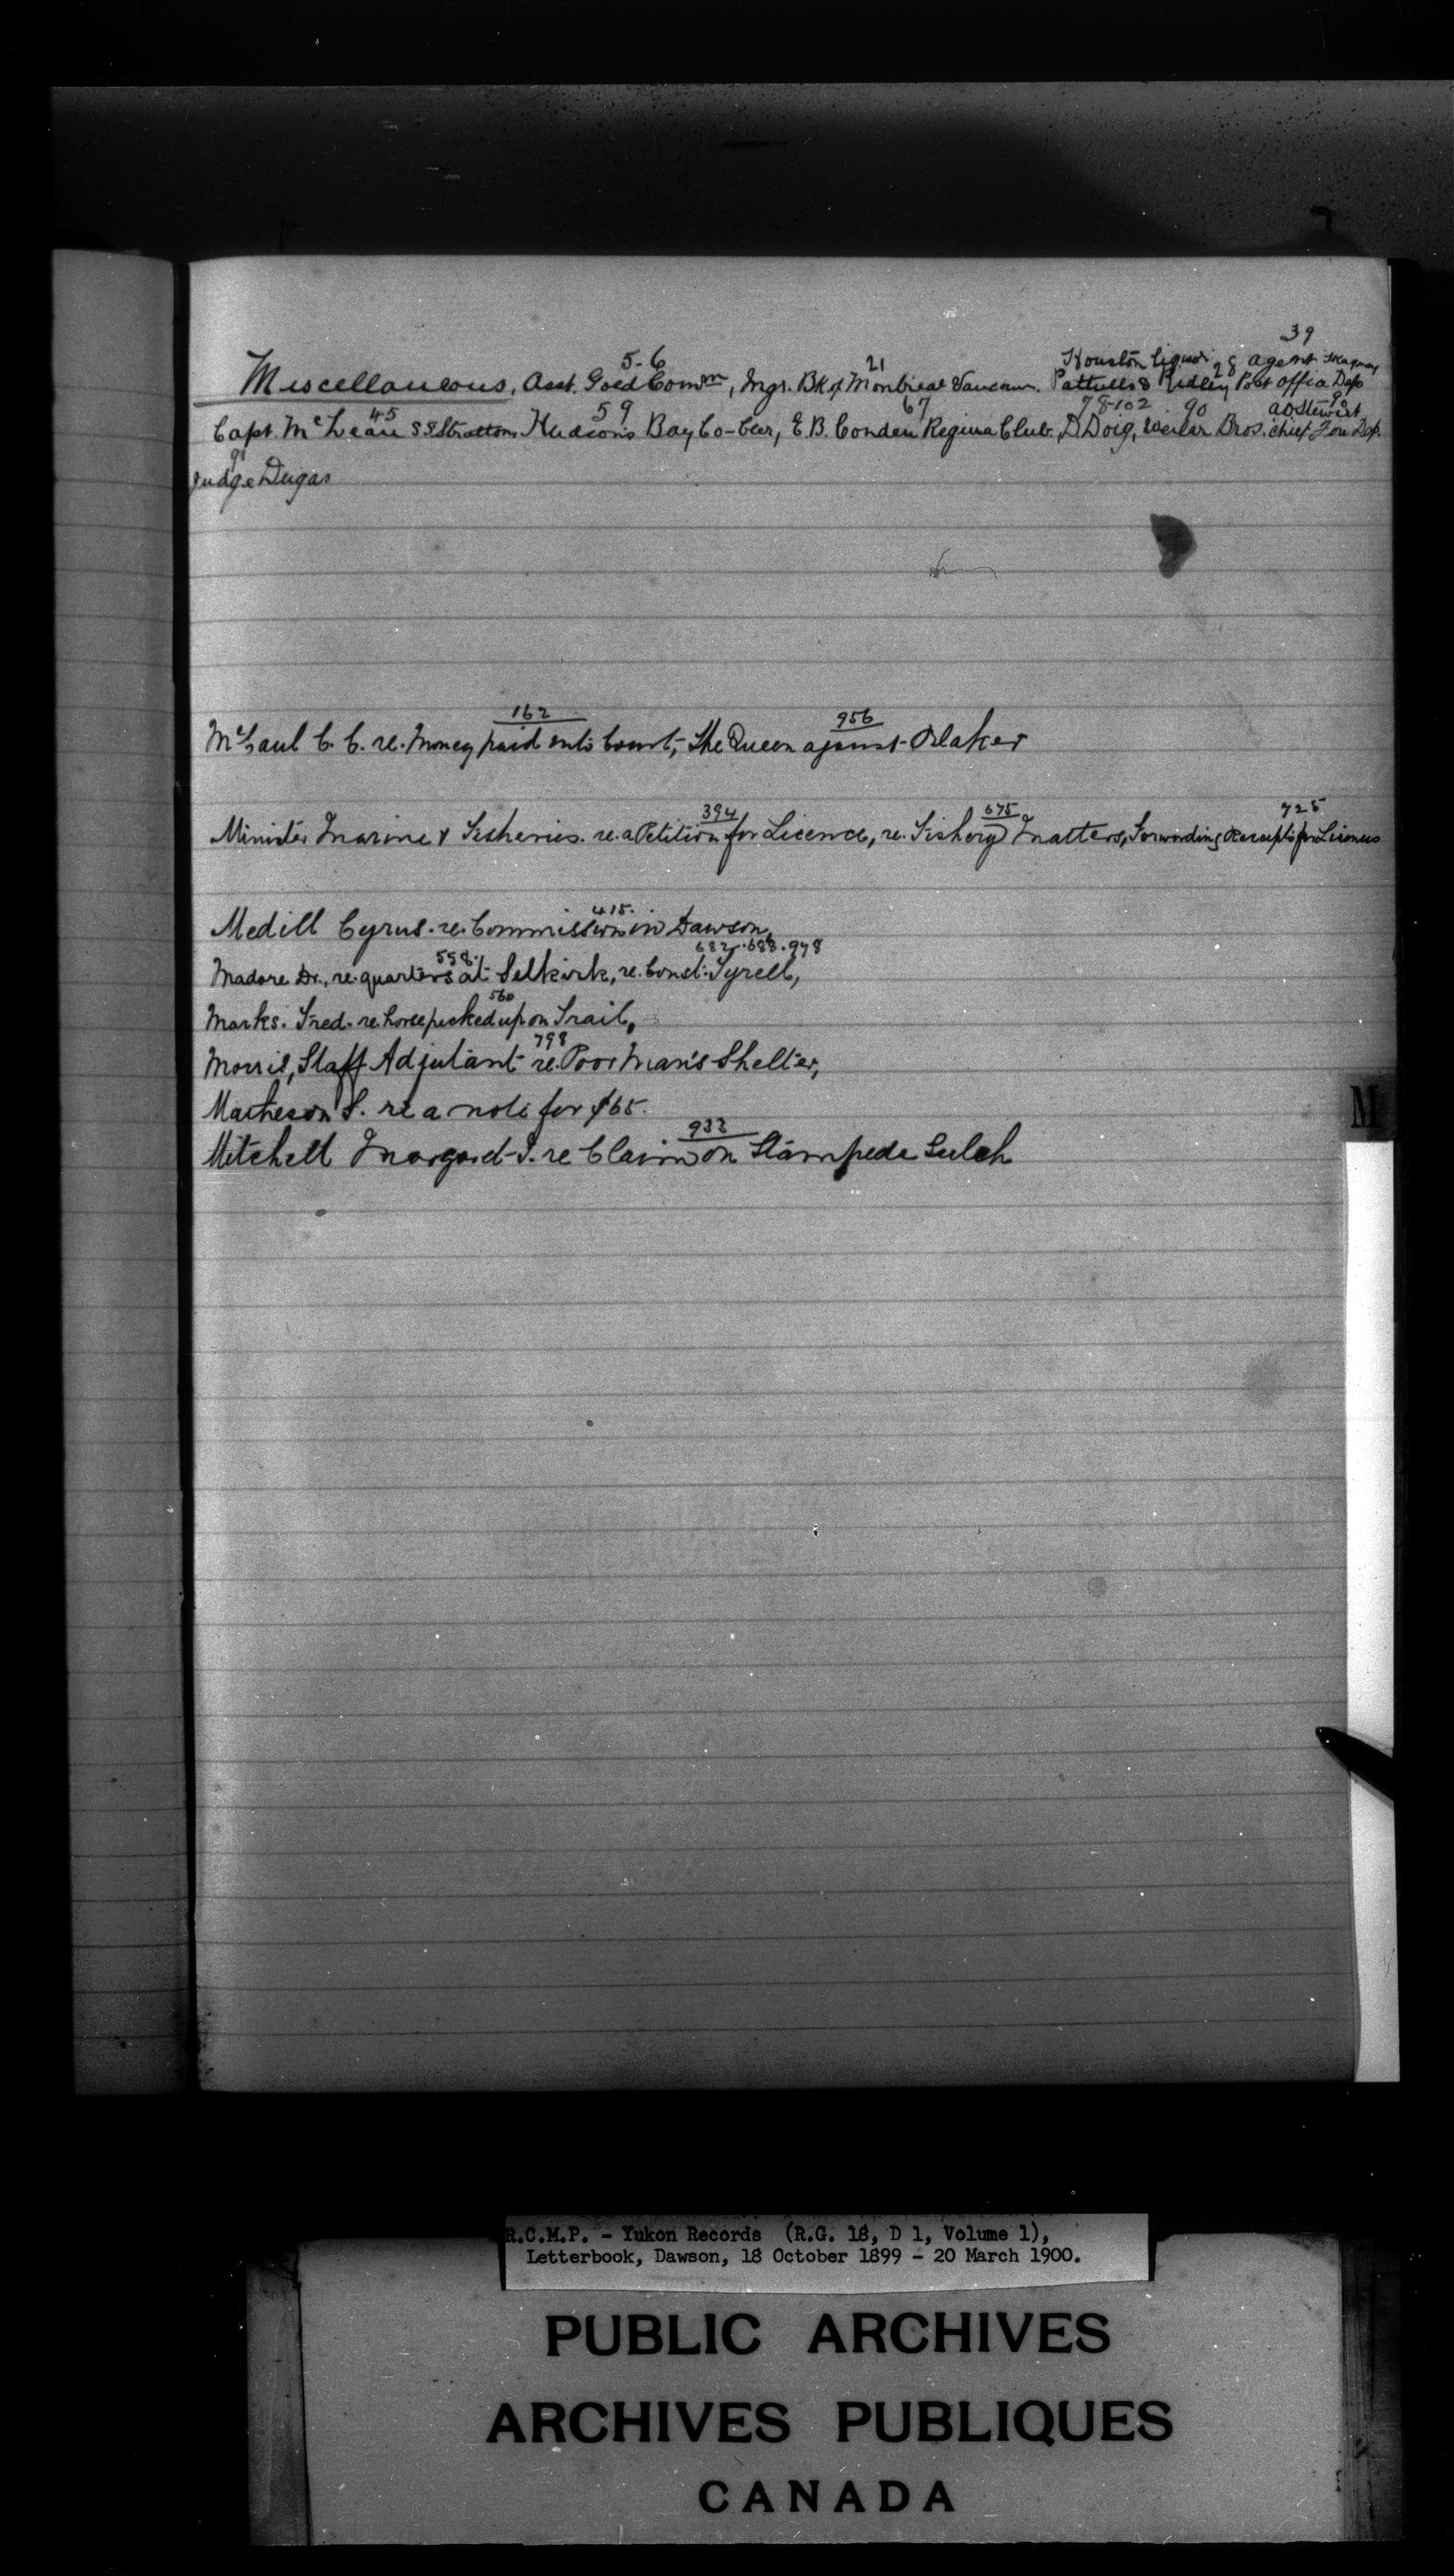 39
5-6 21 Houston liquor 28 agent Skaguay
Miscellaneous, Asst. Gold Comm<sup>n</sup>, Mgr. Bk of Montreal Vancouv. Pattullo & Ridley Post Office Dep
45 59 67 78-102 90 90
Capt. McLean SS Stratton, Hudson's Bay Co-beer, E.B. Condon Regina Club. D Doig, Weiler Bros. A O Stewart chief Fire Dep.
91
Judge Dugas
162 956
McCaul C. C. re. Money paid into Court, The Queen against Slaker
394 675 725
Minister Marine & Fisheries. re. a Petition for Licence, re. Fishery Matters, Forwarding Receipts for Licenses
415.
Medill Cyrus. re. Commission in Dawson,
558. 682.688.978
Madore Dr., re. quarters at Selkirk, re. Const. Tyrell,
560
Marks. Fred. re. horse picked up on Trail,
798
Morris, Staff Adjutant re. Poor Man's Shelter,
Matheson S. re a note for $65.
933
Mitchell Margaret J. re Claim on Stampede Gulch
M
R.C.M.P. - Yukon Records (R.G. 18, D 1, Volume 1),
Letterbook, Dawson, 18 October 1899 - 20 March 1900.
PUBLIC ARCHIVES
ARCHIVES PUBLIQUES
CANADA